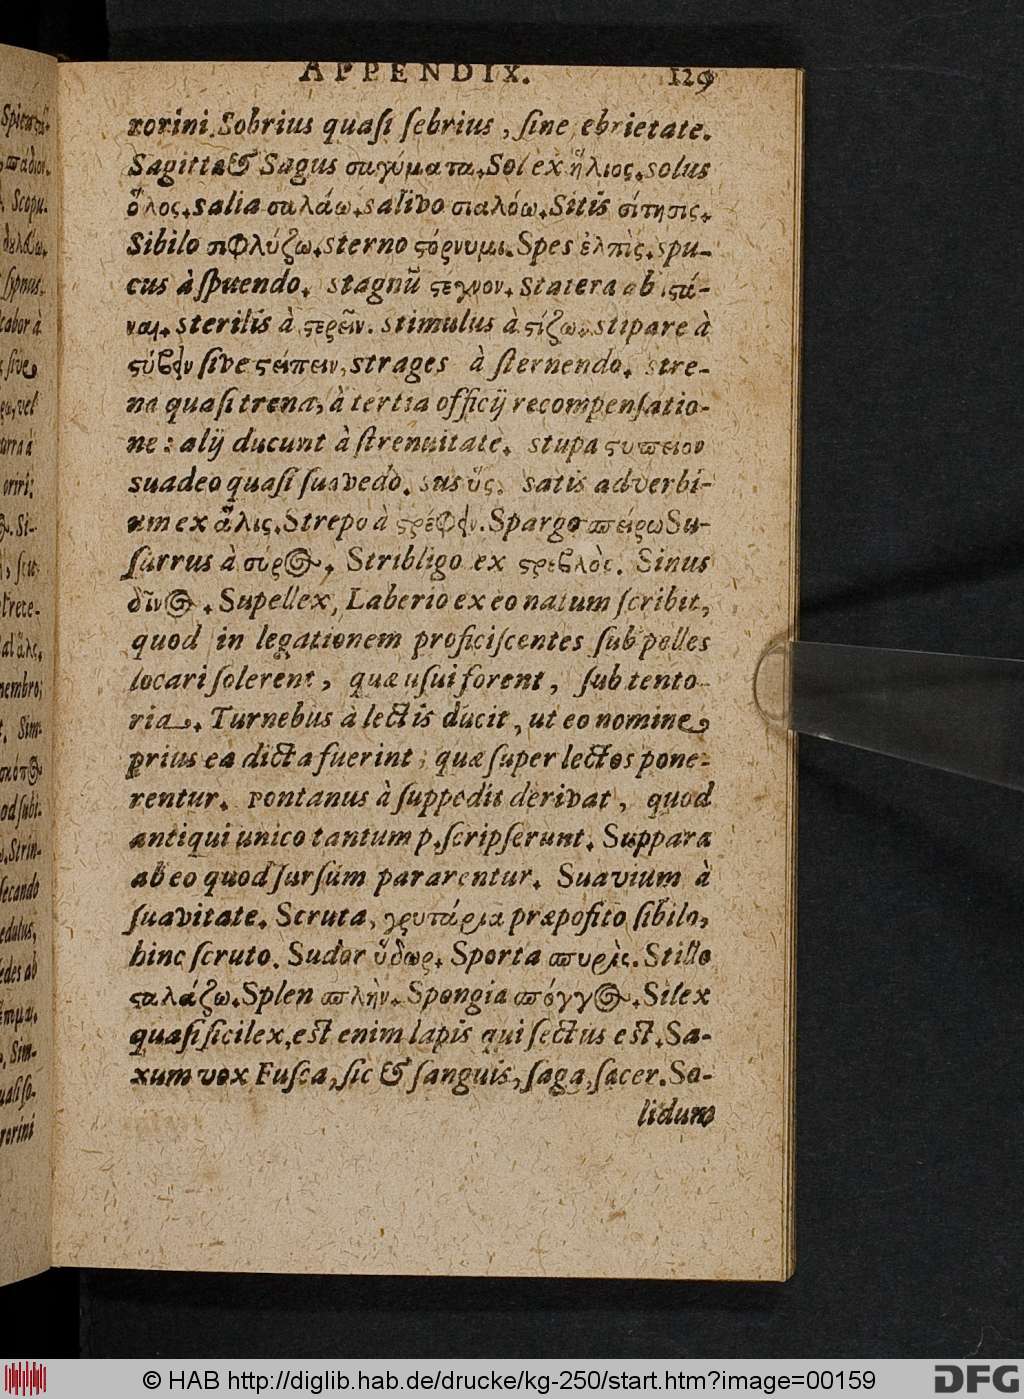 APPENDIX. 129
rorini. Sobrius quaſi ſebrius, ſine ebrietate.
Sagitta & Sagus σαγύματα. Sol ex ἥλιος. solus
ὅλος. salia σαλάω. salivo σιαλόω. Sitis σίτησις.
Sibilo σιφλύζω. sterno ϛόρνυμι. Spes ἐλπὶς. spu-
cus à ſpuendo. stagnũ ϛεγνον. statera ab ἱϛά-
ναι. sterilis à ϛερεῖν. stimulus à ϛίζω. stipare à
ϛύβειν ſive ϛείπειν, strages à ſternendo. stre-
na quaſi trena, à tertia officij recompenſatio-
ne: alij ducunt à ſtrenuitate. stupa ϛυπειον
suadeo quaſi ſuavedo. sus ὕς. satis adverbi-
um ex ἅλις. Strepo à ϛρέφειν. Spargo σπείρω Su-
ſurrus à σύρος. Stribligo ex ϛρεβλὸς. Sinus
δῖνος. Supellex, Laberio ex eo natum ſcribit,
quod in legationem proficiſcentes ſub pelles
locari ſolerent, quæ uſui forent, ſub tento-
ria. Turnebus à lectis ducit, ut eo nomine
prius ea dicta fuerint, quæ ſuper lectos pone-
rentur. Pontanus à ſuppedit derivat, quod
antiqui unico tantum p. ſcripſerunt. Suppara
ab eo quod ſurſum pararentur. Suavium à
ſuavitate. Scruta, γρυπάρια præpoſito ſibilo,
hinc ſcruto. Sudor ὕδωρ. Sporta σπυρὶς. Stillo
ϛαλάζω. Splen σπλὴν. Spongia σπόγγος. Silex
quaſi ſicilex, est enim lapis qui ſectus est. Sa-
xum vox Fuſca, ſic & ſanguis, ſaga, ſacer. So-
lidum
© HAB http://diglib.hab.de/drucke/kg-250/start.htm?image=00159
DFG